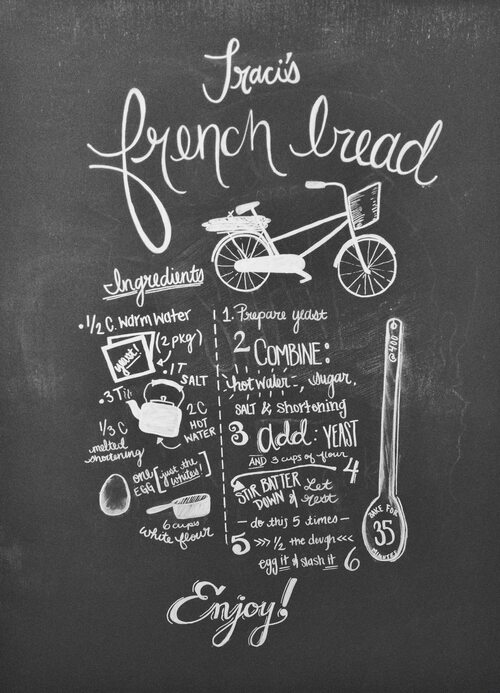 Traci's
french bread
Ingredients
• 1/2 C. warm water
yeast!
(2 pkg)
• 1 T
SALT
• 3 T
2 C
HOT
WATER
1/3 C
melted
shortening
one
EGG
[just the
whites!]
6 cups
white flour
1. Prepare yeast
2 COMBINE:
hot water, sugar,
SALT & shortening
3 add: YEAST
AND 3 cups of flour
4
STIR BATTER Let
DOWN & rest
— do this 5 times —
5 >>> 1/2 the dough <<<
egg it & slash it 6
@ 400
BAKE FOR
35
MINUTES
Enjoy!